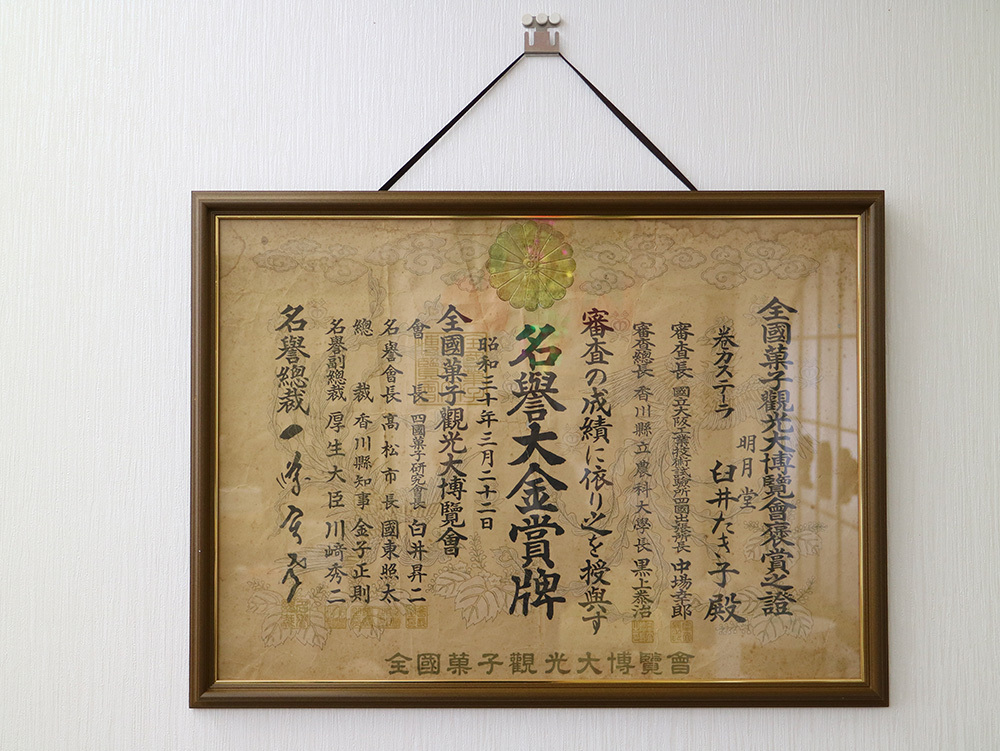 全國菓子觀光大博覽會褒賞之證
卷カステーラ
明月堂
臼井たき子殿
審査長 國立大阪工業技術試驗所四國出張所長 中場幸郎
審査總長 香川縣立農科大學長 黒上泰治
審査の成績に依り之を授與す
名譽大金賞牌
昭和三十年三月二十二日
全國菓子觀光大博覽會
會長 四國菓子研究會長 白井昇二
名譽會長 高松市長 國東照太
總裁 香川縣知事 金子正則
名譽副總裁 厚生大臣 川﨑秀二
名譽總裁 一
全國菓子觀光大博覽會